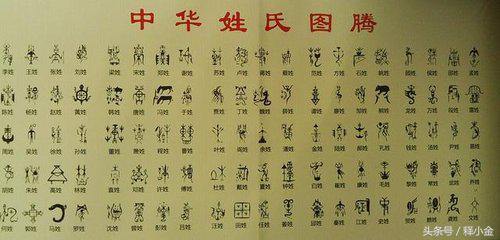 中华姓氏图腾
李姓 王姓 张姓 刘姓 梁姓 宋姓 郑姓 谢姓 苏姓 卢姓 蒋姓 蔡姓 范姓 方姓 石姓 姚姓 侯姓 孟姓
陈姓 杨姓 赵姓 黄姓 韩姓 唐姓 冯姓 于姓 贾姓 丁姓 魏姓 薛姓 邹姓 熊姓 龙姓 万姓
周姓 吴姓 徐姓 孙姓 董姓 程姓 曹姓 叶姓 余姓 潘姓 金姓 陆姓 郝姓 孔姓 钱姓 汤姓 尹姓 易姓
胡姓 朱姓 高姓 林姓 袁姓 邓姓 许姓 傅姓 杜姓 戴姓 夏姓 钟姓 白姓 崔姓 康姓 毛姓 常姓
何姓 郭姓 马姓 罗姓 沈姓 曾姓 彭姓 吕姓 汪姓 田姓 任姓 秦姓 江姓 史姓 文姓
头条号 / 释小金